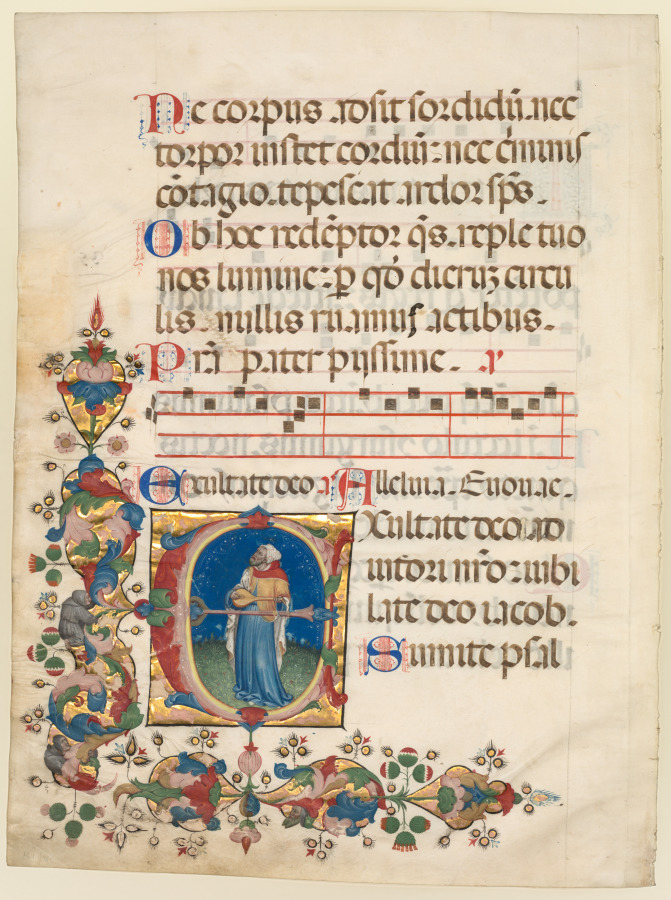 Ne corpus adsit sordidū. nec
torpor instet cordiū: nec c̄minis
cōtagio. tepescat ardor sp̄s.
Ob hoc redēptor q̄s. reple tuo
nos lumine: ꝑ qđ dieruꝫ circu
lis. nullis ruamus actibus.
Prā pater pijssime.
Exultate deo a Alleluia. Euouae.
EXultate deo ad
iutori nr̄o: iubi
late deo iacob.
Sumite psal